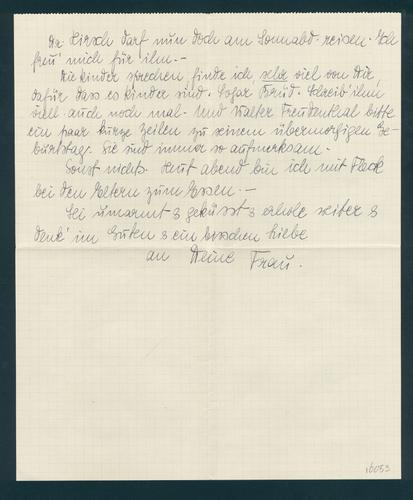 Dr. Hirsch darf nun doch am Sonnabd. reisen. Ich
freu' mich für ihn. –
Die Kinder sprechen, finde ich, sehr viel von Dir,
dafür dass es Kinder sind. Sogar Freud. Schreib' ihm
viell. auch noch mal. Und Walter Freudenthal bitte
ein paar kurze Zeilen zu seinem übermorgigen Ge-
burtstag. Sie sind immer so aufmerksam.
Sonst nichts. Heut abend bin ich mit Fleck
bei den Eltern zum Essen. –
Sei umarmt & geküsst & erhole weiter &
denk' im Guten & ein bisschen Liebe
an Deine Frau.
16033